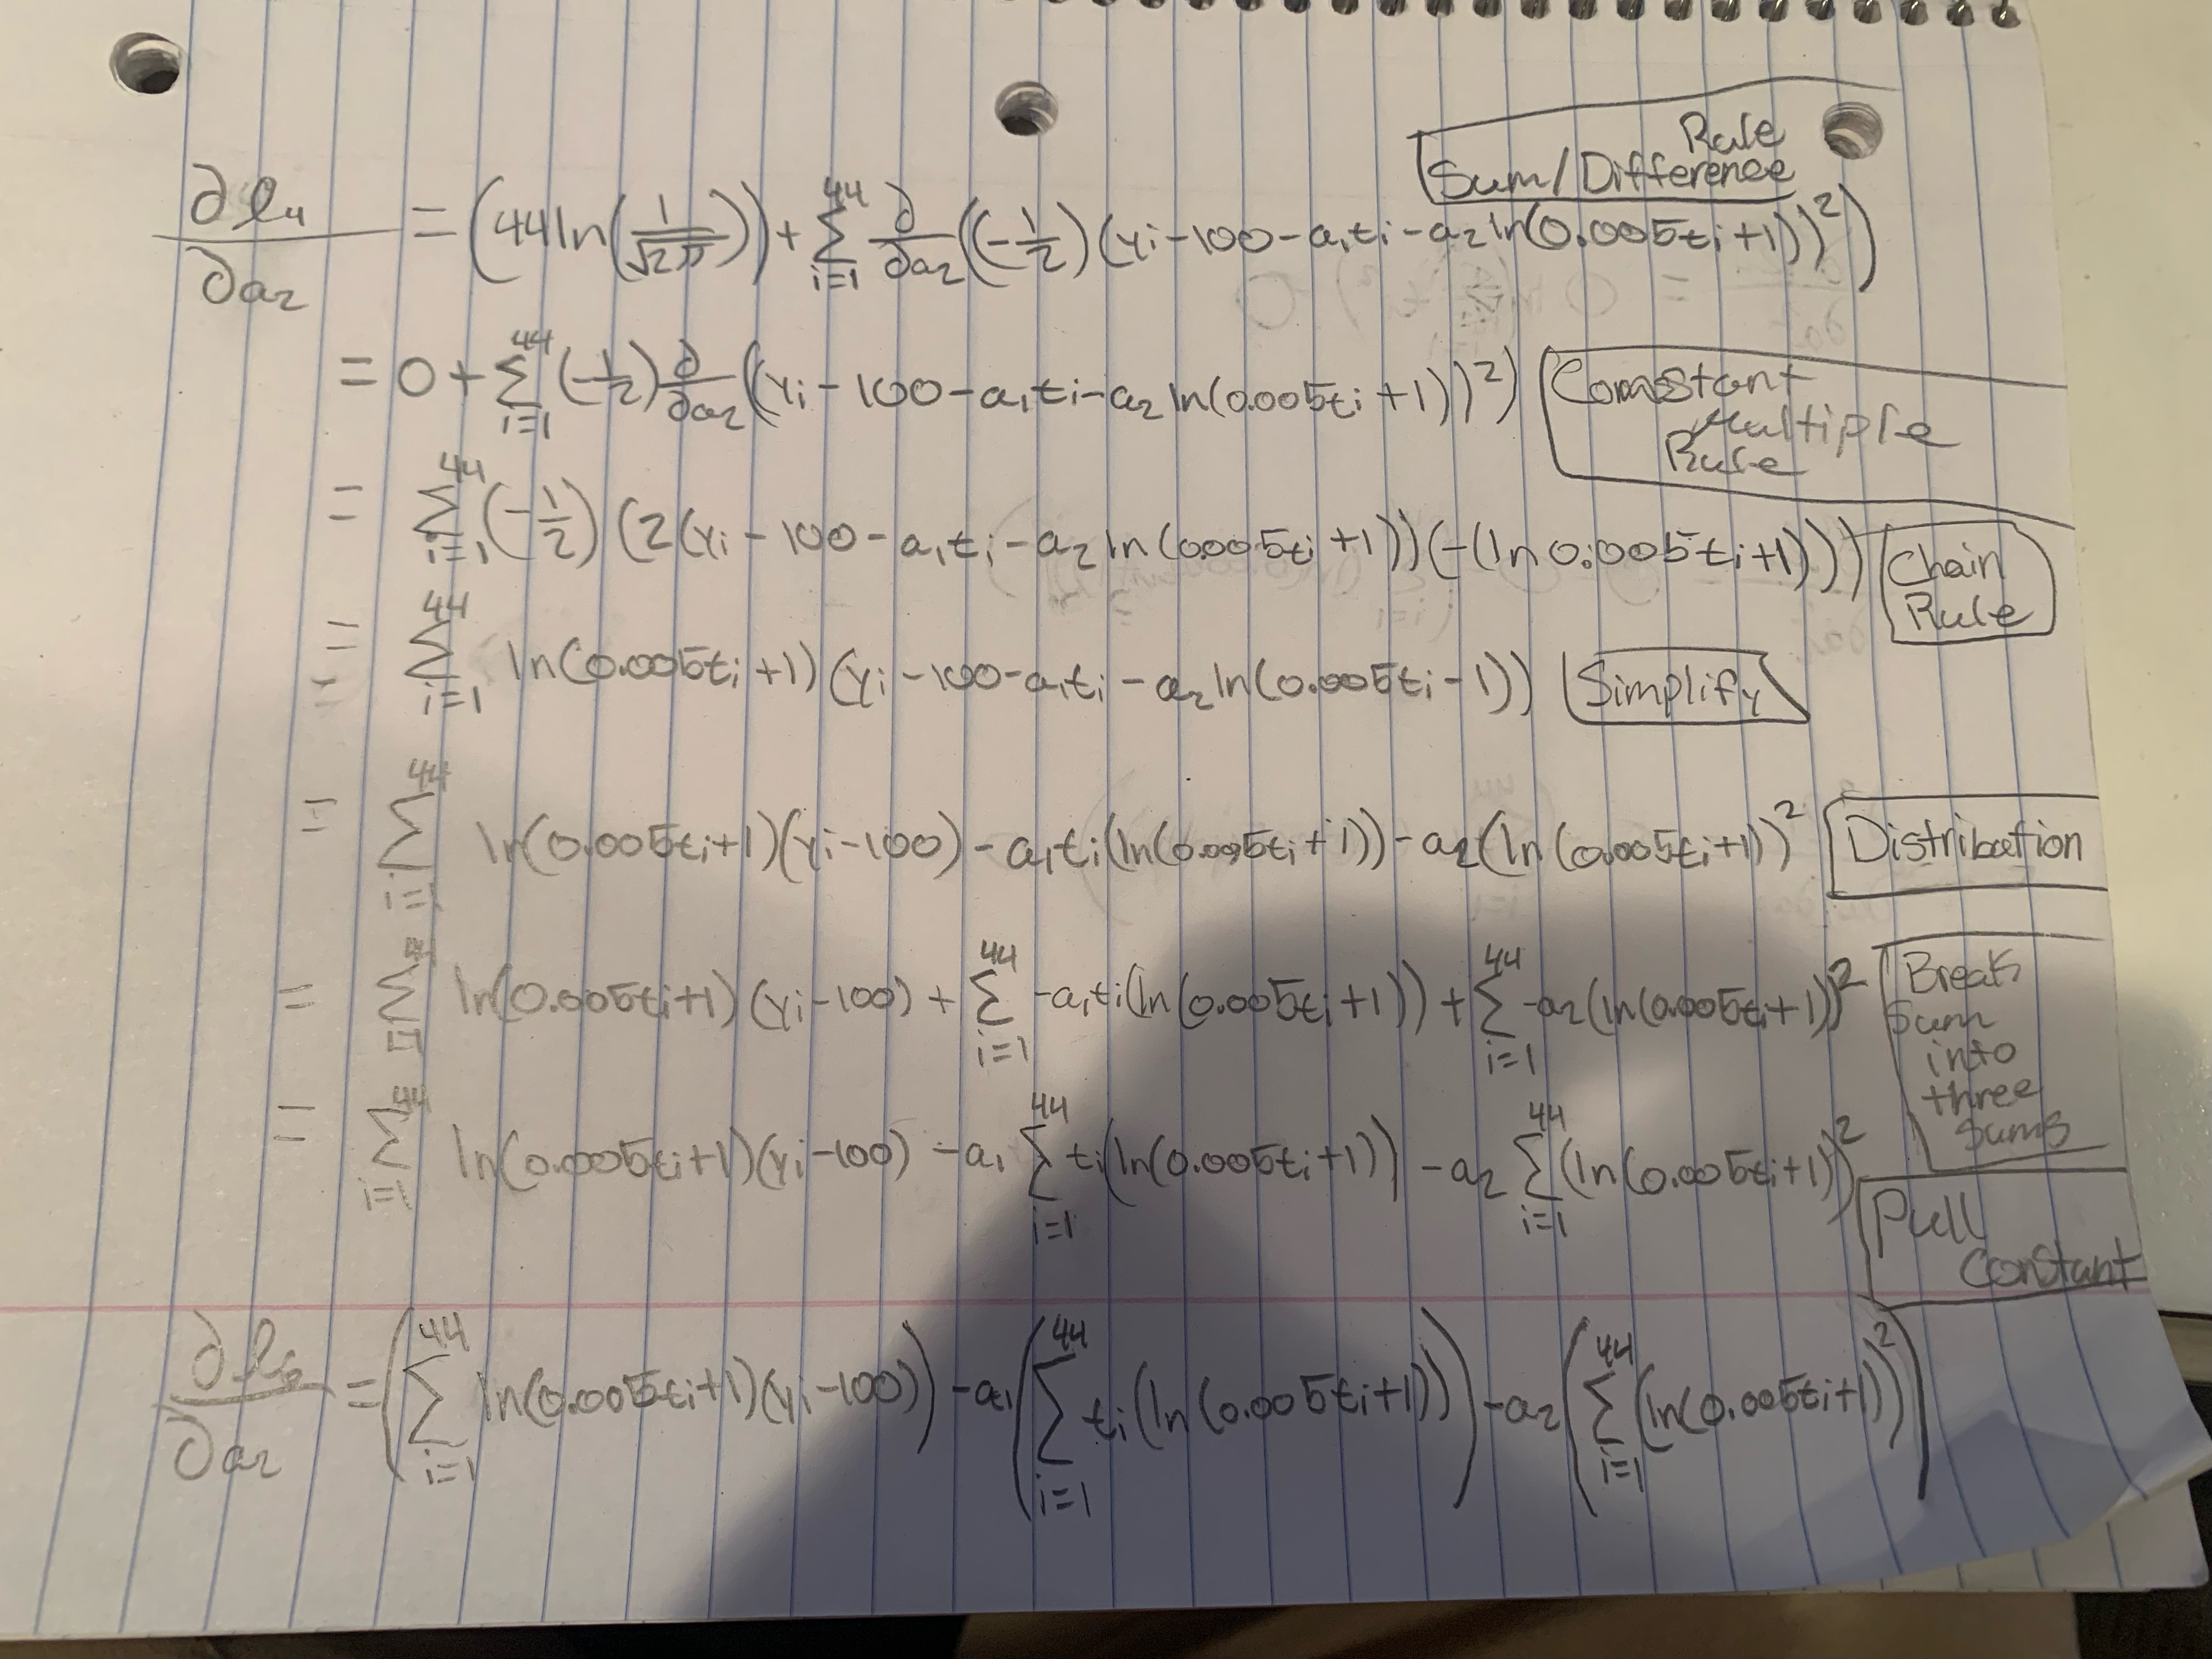 Rule
Sum/Difference
∂ℓ₄/∂a₂ = (44ln(1/√2π)) + Σ_{i=1}^{44} ∂/∂a₂((-1/2)(yi-100-a₁ti-a₂ln(0.005ti+1))²)
= 0 + Σ_{i=1}^{44} (-1/2) ∂/∂a₂(yi-100-a₁ti-a₂ln(0.005ti+1))²) Constant
Multiple
Rule
= Σ_{i=1}^{44} (-1/2)(2(yi-100-a₁ti-a₂ln(0.005ti+1))(-(ln0.005ti+1))) Chain
Rule
= Σ_{i=1}^{44} ln(0.005ti+1)(yi-100-a₁ti-a₂ln(0.005ti-1)) Simplify
= Σ_{i=1}^{44} ln(0.005ti+1)(yi-100)-a₁ti(ln(0.005ti+1))-a₂(ln(0.005ti+1))² Distribution
= Σ_{i=1}^{44} ln(0.005ti+1)(yi-100)+Σ_{i=1}^{44} -a₁ti(ln(0.005ti+1))+Σ_{i=1}^{44} -a₂(ln(0.005ti+1))² Break
Sum
into
three
sums
= Σ_{i=1}^{44} ln(0.005ti+1)(yi-100) -a₁ Σ_{i=1}^{44} ti(ln(0.005ti+1)) -a₂ Σ_{i=1}^{44} (ln(0.005ti+1))² Pull
Constant
∂ℓ₆/∂a₂ = (Σ_{i=1}^{44} ln(0.005ti+1)(yi-100)) -a₁(Σ_{i=1}^{44} ti(ln(0.005ti+1))) -a₂(Σ_{i=1}^{44} (ln(0.005ti+1))²)